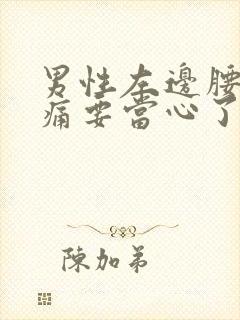 男性左邊腰
痛要當心了
陳加弟